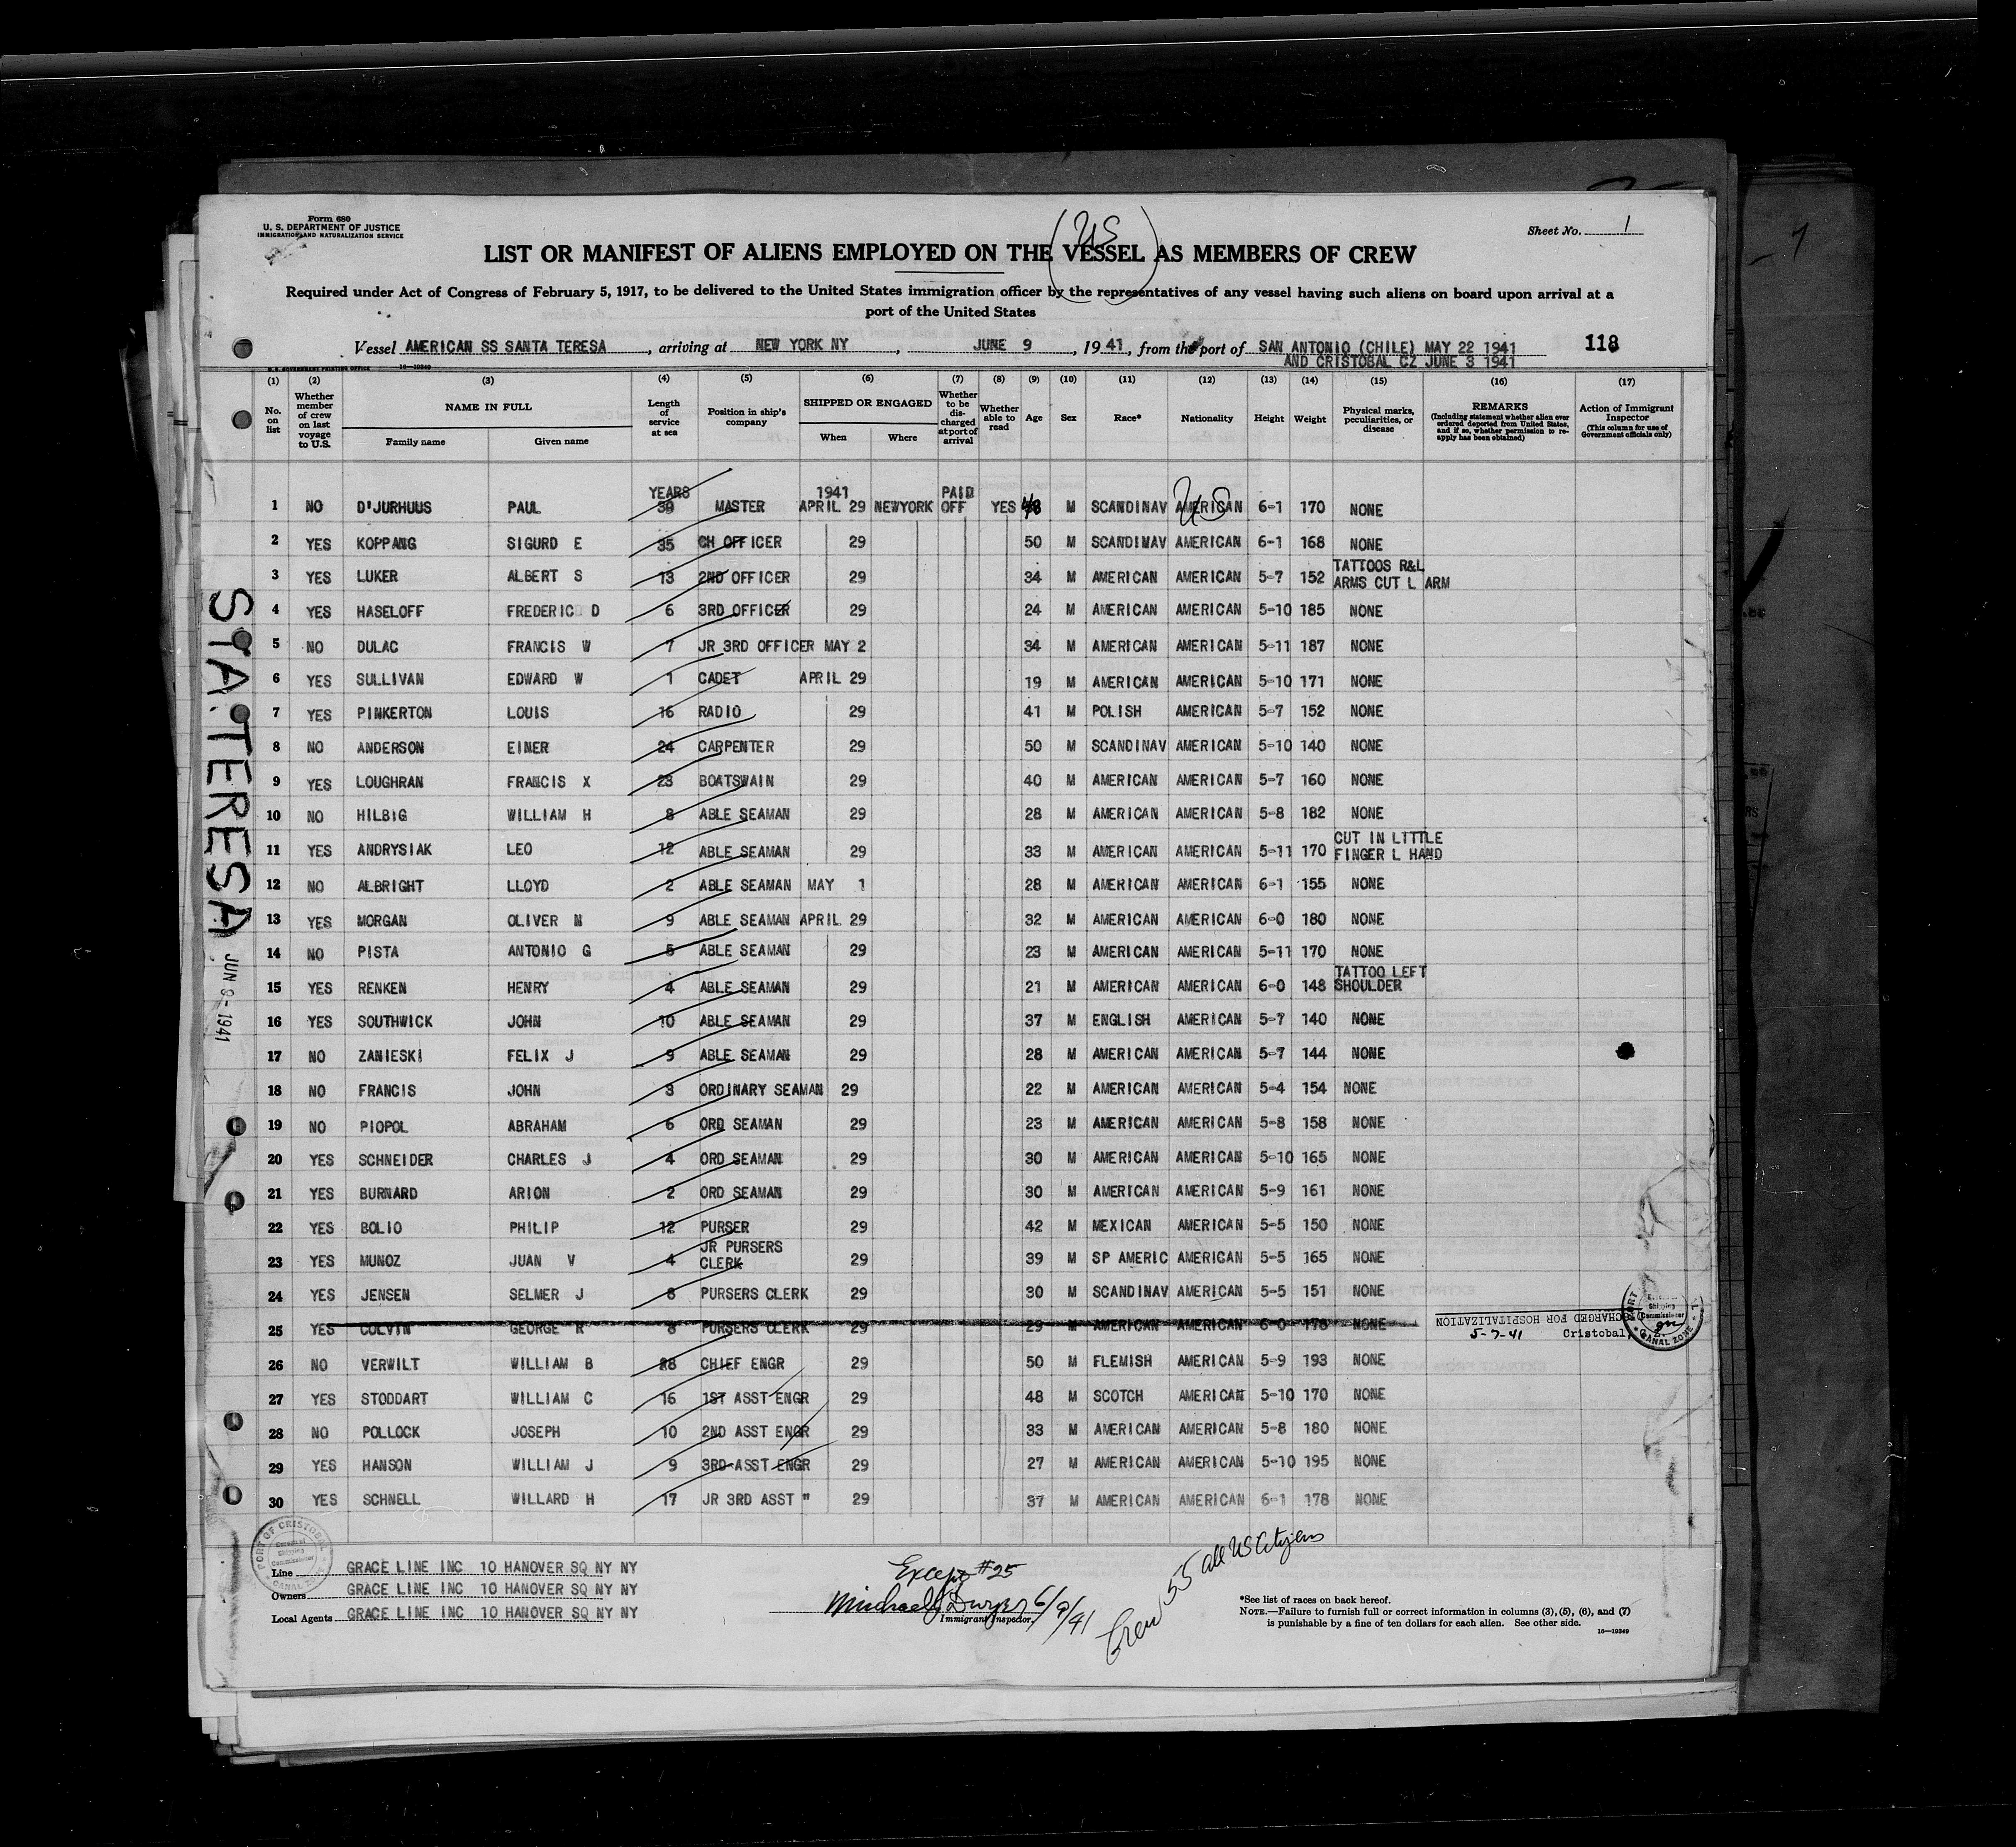 Form 680
U. S. DEPARTMENT OF JUSTICE
IMMIGRATION AND NATURALIZATION SERVICE
Sheet No. 1
(US)
LIST OR MANIFEST OF ALIENS EMPLOYED ON THE VESSEL AS MEMBERS OF CREW
Required under Act of Congress of February 5, 1917, to be delivered to the United States immigration officer by the representatives of any vessel having such aliens on board upon arrival at a
port of the United States
Vessel AMERICAN SS SANTA TERESA, arriving at NEW YORK NY, JUNE 9, 1941, from the port of SAN ANTONIO (CHILE) MAY 22 1941 118
AND CRISTOBAL CZ JUNE 3 1941
U. S. GOVERNMENT PRINTING OFFICE 16—19349
(1) (2) (3) (4) (5) (6) (7) (8) (9) (10) (11) (12) (13) (14) (15) (16) (17)
No. on list
Whether member of crew on last voyage to U.S.
NAME IN FULL
Family name Given name
Length of service at sea
Position in ship's company
SHIPPED OR ENGAGED
When Where
Whether to be discharged at port of arrival
Whether able to read
Age
Sex
Race*
Nationality
Height
Weight
Physical marks, peculiarities, or disease
REMARKS
(Including statement whether alien ever ordered deported from United States, and if so, whether permission to reapply has been obtained)
Action of Immigrant Inspector
(This column for use of Government officials only)
YEARS 1941 PAID US
1 NO D'JURHUUS PAUL 30 MASTER APRIL 29 NEWYORK OFF YES 48 M SCANDINAV AMERICAN 6-1 170 NONE
2 YES KOPPANG SIGURD E 35 CH OFFICER 29 50 M SCANDINAV AMERICAN 6-1 168 NONE
3 YES LUKER ALBERT S 13 2ND OFFICER 29 34 M AMERICAN AMERICAN 5-7 152 TATTOOS R&L ARMS CUT L ARM
4 YES HASELOFF FREDERIC D 6 3RD OFFICER 29 24 M AMERICAN AMERICAN 5-10 185 NONE
5 NO DULAC FRANCIS W 7 JR 3RD OFFICER MAY 2 34 M AMERICAN AMERICAN 5-11 187 NONE
6 YES SULLIVAN EDWARD W 1 CADET APRIL 29 19 M AMERICAN AMERICAN 5-10 171 NONE
7 YES PINKERTON LOUIS 16 RADIO 29 41 M POLISH AMERICAN 5-7 152 NONE
8 NO ANDERSON EINER 24 CARPENTER 29 50 M SCANDINAV AMERICAN 5-10 140 NONE
9 YES LOUGHRAN FRANCIS X 23 BOATSWAIN 29 40 M AMERICAN AMERICAN 5-7 160 NONE
10 NO HILBIG WILLIAM H 8 ABLE SEAMAN 29 28 M AMERICAN AMERICAN 5-8 182 NONE
11 YES ANDRYSIAK LEO 12 ABLE SEAMAN 29 33 M AMERICAN AMERICAN 5-11 170 CUT IN LITTLE FINGER L HAND
12 NO ALBRIGHT LLOYD 2 ABLE SEAMAN MAY 1 28 M AMERICAN AMERICAN 6-1 155 NONE
13 YES MORGAN OLIVER N 9 ABLE SEAMAN APRIL 29 32 M AMERICAN AMERICAN 6-0 180 NONE
14 NO PISTA ANTONIO G 5 ABLE SEAMAN 29 23 M AMERICAN AMERICAN 5-11 170 NONE
15 YES RENKEN HENRY 4 ABLE SEAMAN 29 21 M AMERICAN AMERICAN 6-0 148 TATTOO LEFT SHOULDER
16 YES SOUTHWICK JOHN 10 ABLE SEAMAN 29 37 M ENGLISH AMERICAN 5-7 140 NONE
17 NO ZANIESKI FELIX J 9 ABLE SEAMAN 29 28 M AMERICAN AMERICAN 5-7 144 NONE
18 NO FRANCIS JOHN 3 ORDINARY SEAMAN 29 22 M AMERICAN AMERICAN 5-4 154 NONE
19 NO PIOPOL ABRAHAM 6 ORD SEAMAN 29 23 M AMERICAN AMERICAN 5-8 158 NONE
20 YES SCHNEIDER CHARLES J 4 ORD SEAMAN 29 30 M AMERICAN AMERICAN 5-10 165 NONE
21 YES BURNARD ARION 2 ORD SEAMAN 29 30 M AMERICAN AMERICAN 5-9 161 NONE
22 YES BOLIO PHILIP 12 PURSER 29 42 M MEXICAN AMERICAN 5-5 150 NONE
23 YES MUNOZ JUAN V 4 JR PURSERS CLERK 29 39 M SP AMERIC AMERICAN 5-5 165 NONE
24 YES JENSEN SELMER J 8 PURSERS CLERK 29 30 M SCANDINAV AMERICAN 5-5 151 NONE
25 YES COLVIN GEORGE R 8 PURSERS CLERK 29 29 M AMERICAN AMERICAN 6-0 178 NONE
DISCHARGED FOR HOSPITALIZATION
5-7-41 Cristobal,
26 NO VERWILT WILLIAM B 28 CHIEF ENGR 29 50 M FLEMISH AMERICAN 5-9 193 NONE
27 YES STODDART WILLIAM C 16 1ST ASST ENGR 29 48 M SCOTCH AMERICAN 5-10 170 NONE
28 NO POLLOCK JOSEPH 10 2ND ASST ENGR 29 33 M AMERICAN AMERICAN 5-8 180 NONE
29 YES HANSON WILLIAM J 9 3RD ASST ENGR 29 27 M AMERICAN AMERICAN 5-10 195 NONE
30 YES SCHNELL WILLARD H 17 JR 3RD ASST " 29 37 M AMERICAN AMERICAN 6-1 178 NONE
STA. TERESA
JUN 9- 1941
PORT OF CRISTOBAL
Shipping Commissioner
CANAL ZONE
Line GRACE LINE INC 10 HANOVER SQ NY NY
Owners GRACE LINE INC 10 HANOVER SQ NY NY
Local Agents GRACE LINE INC 10 HANOVER SQ NY NY
Except #25
Michael J Dwyer 6/9/41
Immigrant Inspector.
Crew 55 all US Citizens
*See list of races on back hereof.
NOTE.—Failure to furnish full or correct information in columns (3), (5), (6), and (7)
is punishable by a fine of ten dollars for each alien. See other side.
16—19349